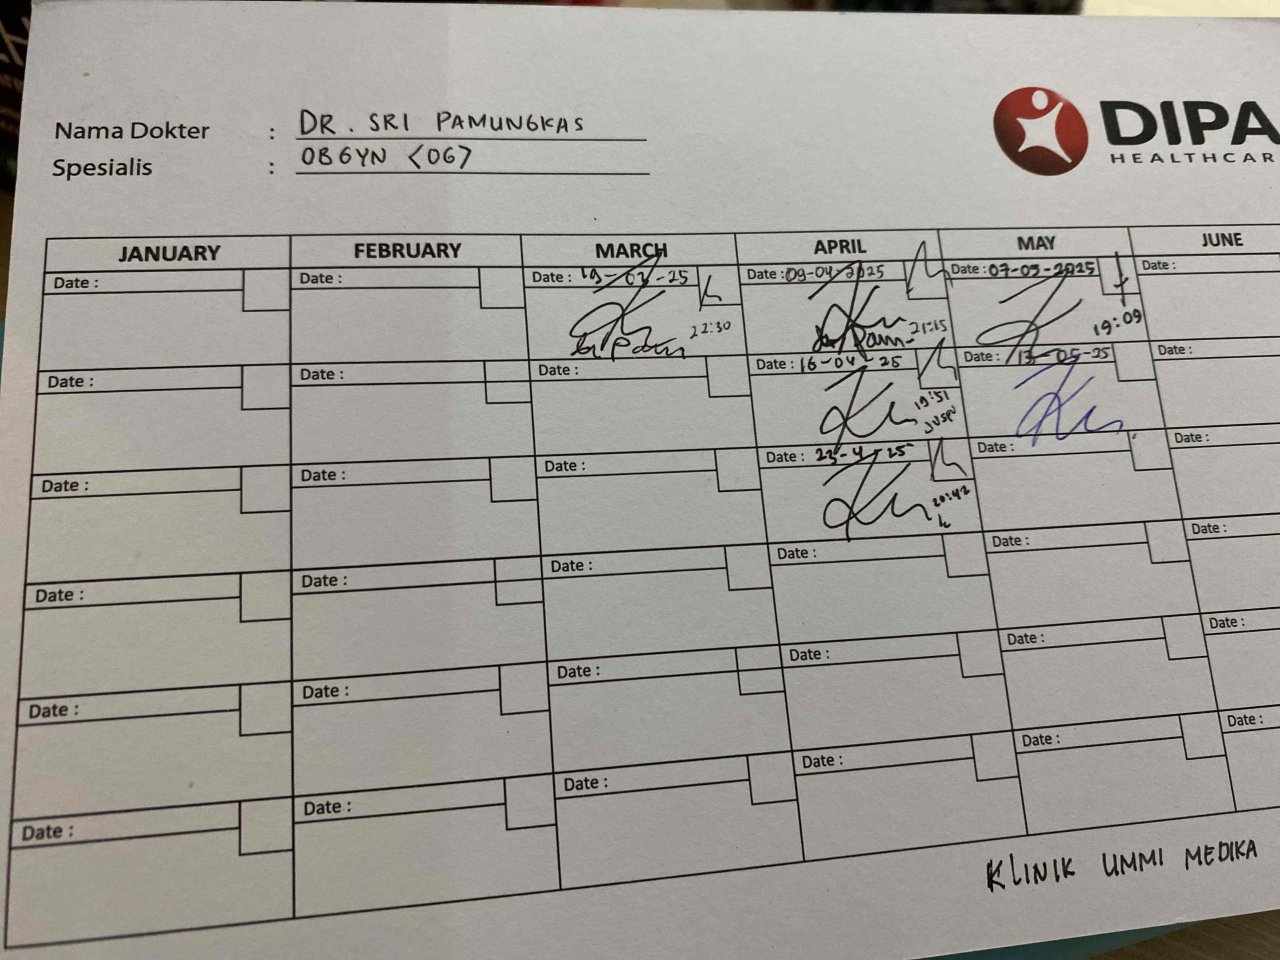 Nama Dokter : DR. SRI PAMUNGKAS
Spesialis : OBGYN <OG>
DIPA
HEALTHCAR
JANUARY FEBRUARY MARCH APRIL MAY JUNE
Date : Date : Date : 19-03-25 Date : 09-04-2025 Date : 07-05-2025 Date :
22:30 21:15 19:09
Date : Date : Date : Date : 16-04-25 Date : 13-05-25 Date :
19:51
Date : Date : Date : Date : 23-4-25 Date : Date :
20:42
Date : Date : Date : Date : Date : Date :
Date : Date : Date : Date : Date : Date :
Date : Date : Date : Date : Date : Date :
KLINIK UMMI MEDIKA